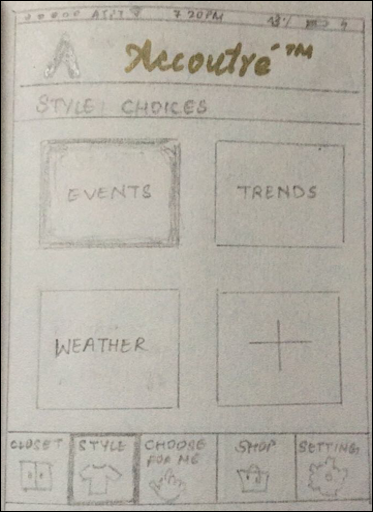 AT&T 7 20 PM 18%
Accoutré™
STYLE CHOICES
EVENTS TRENDS
WEATHER
CLOSET STYLE CHOOSE FOR ME SHOP SETTING